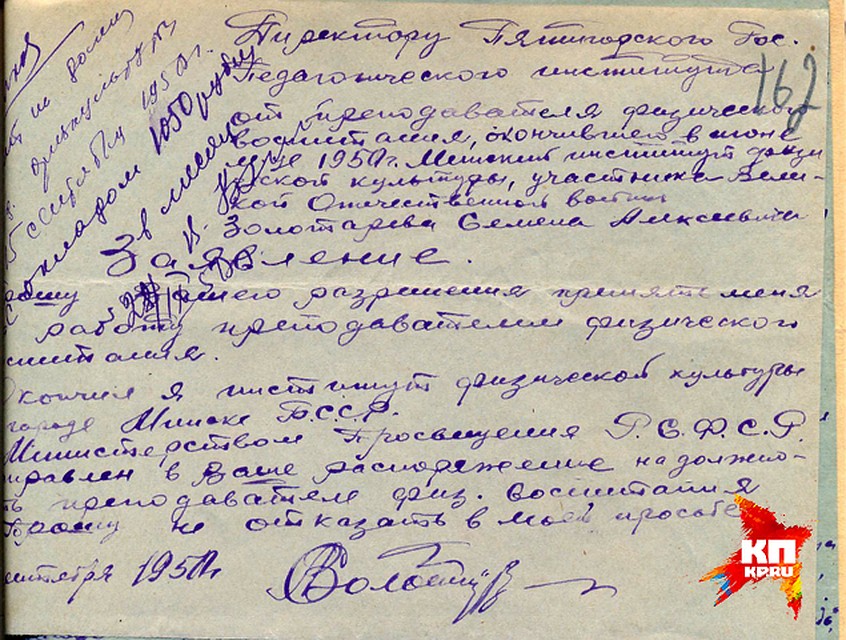 Директору Пятигорского Гос.
Педагогического института
162
от преподавателя физического
воспитания, окончившего в июне
1950 г. Минский институт физи
ческой культуры, участника Вели-
кой Отечественной войны
Золотарева Семена Алексеевича
Заявление.
Вашего разрешения принять меня
работу преподавателем физического
питания.
кончил я институт физической культуры
городе Минске Б.С.С.Р.
Министерством Просвещения Р.С.Ф.С.Р.
правлен в Ваше распоряжение на должно-
ть преподавателя физ. воспитания
Прошу не отказать в моей просьбе
ентября 1950 г.
сентября 1950 г.
окладом 1050 рублей
в месяц
КП
KP.RU